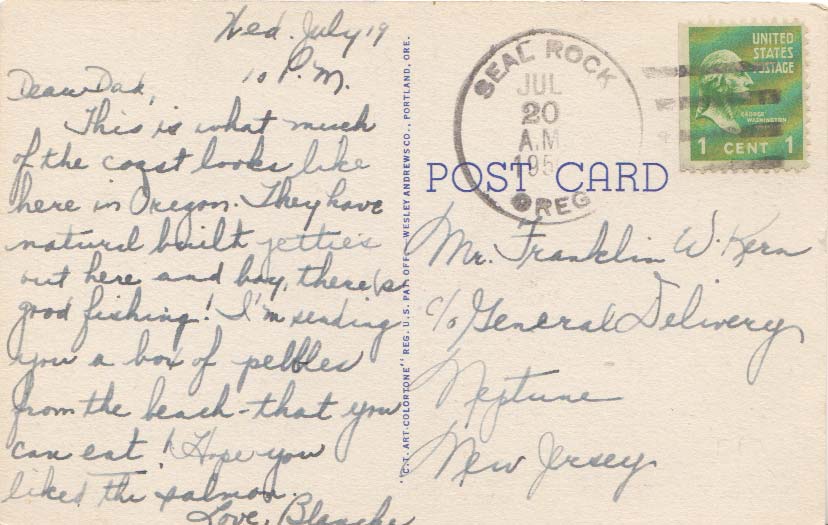 Wed. July 19
10 P.M.
Dear Dad,
This is what much
of the coast looks like
here in Oregon. They have
natural built jetties
out here and boy, there is
good fishing! I'm sending
you a box of pebbles
from the beach - that you
can eat! Hope you
liked the salmon.
Love, Blanche
"C.T. ART-COLORTONE" REG. U.S. PAT. OFF. — WESLEY ANDREWS CO., PORTLAND, ORE.
SEAL ROCK
JUL
20
A.M.
195
OREG
UNITED
STATES
POSTAGE
GEORGE
WASHINGTON
1 CENT 1
POST CARD
Mr. Franklin W. Kern
c/o General Delivery
Neptune
New Jersey